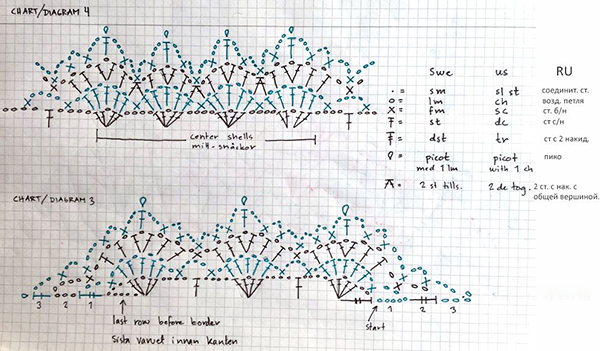 CHART/DIAGRAM 4
swe us RU
• = sm sl st соединит. ст.
o = lm ch возд. петля
x = fm sc ст. б/н
= st dc ст с/н
= dst tr ст с 2 накид.
picot picot пико
med 1 lm with 1 ch
= 2 st tills. 2 dc tog. 2 ст. с нак. с
общей вершиной.
center shells
mitt-snäckor
CHART/DIAGRAM 3
3 2 1
last row before border
Sista varvet innan kanten
start
1 2 3